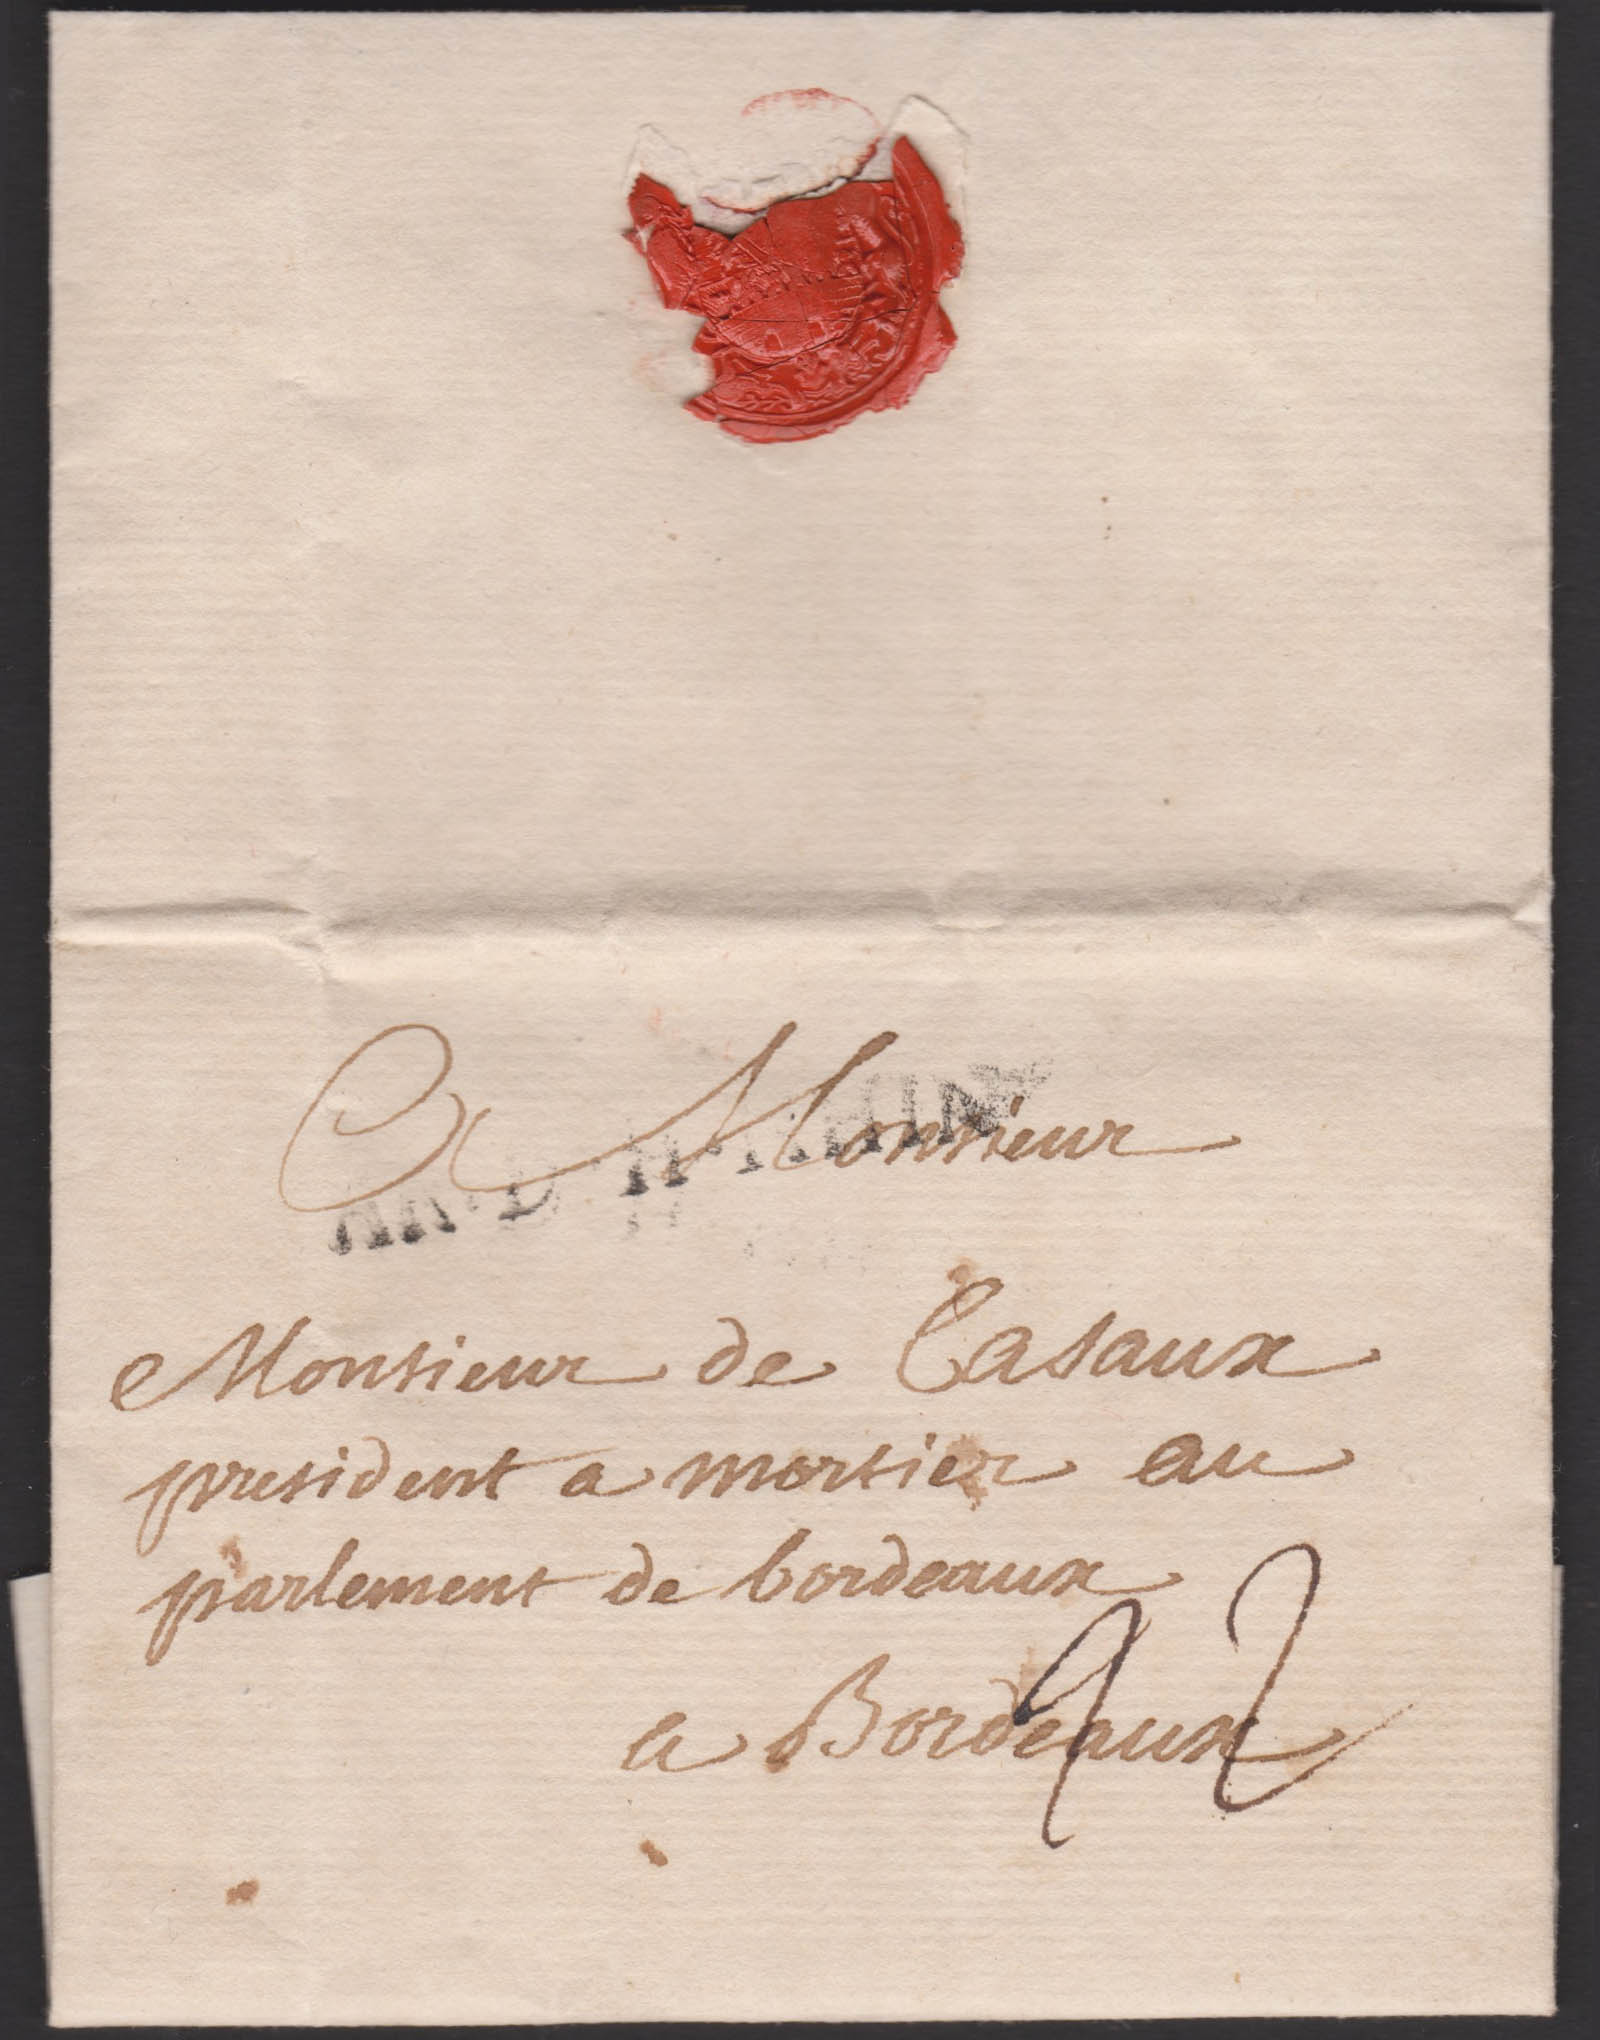 Monsieur
AR·D·H·RHIN
Monsieur de Casaux
president a mortier au
parlement de bordeaux
a Bordeaux
22